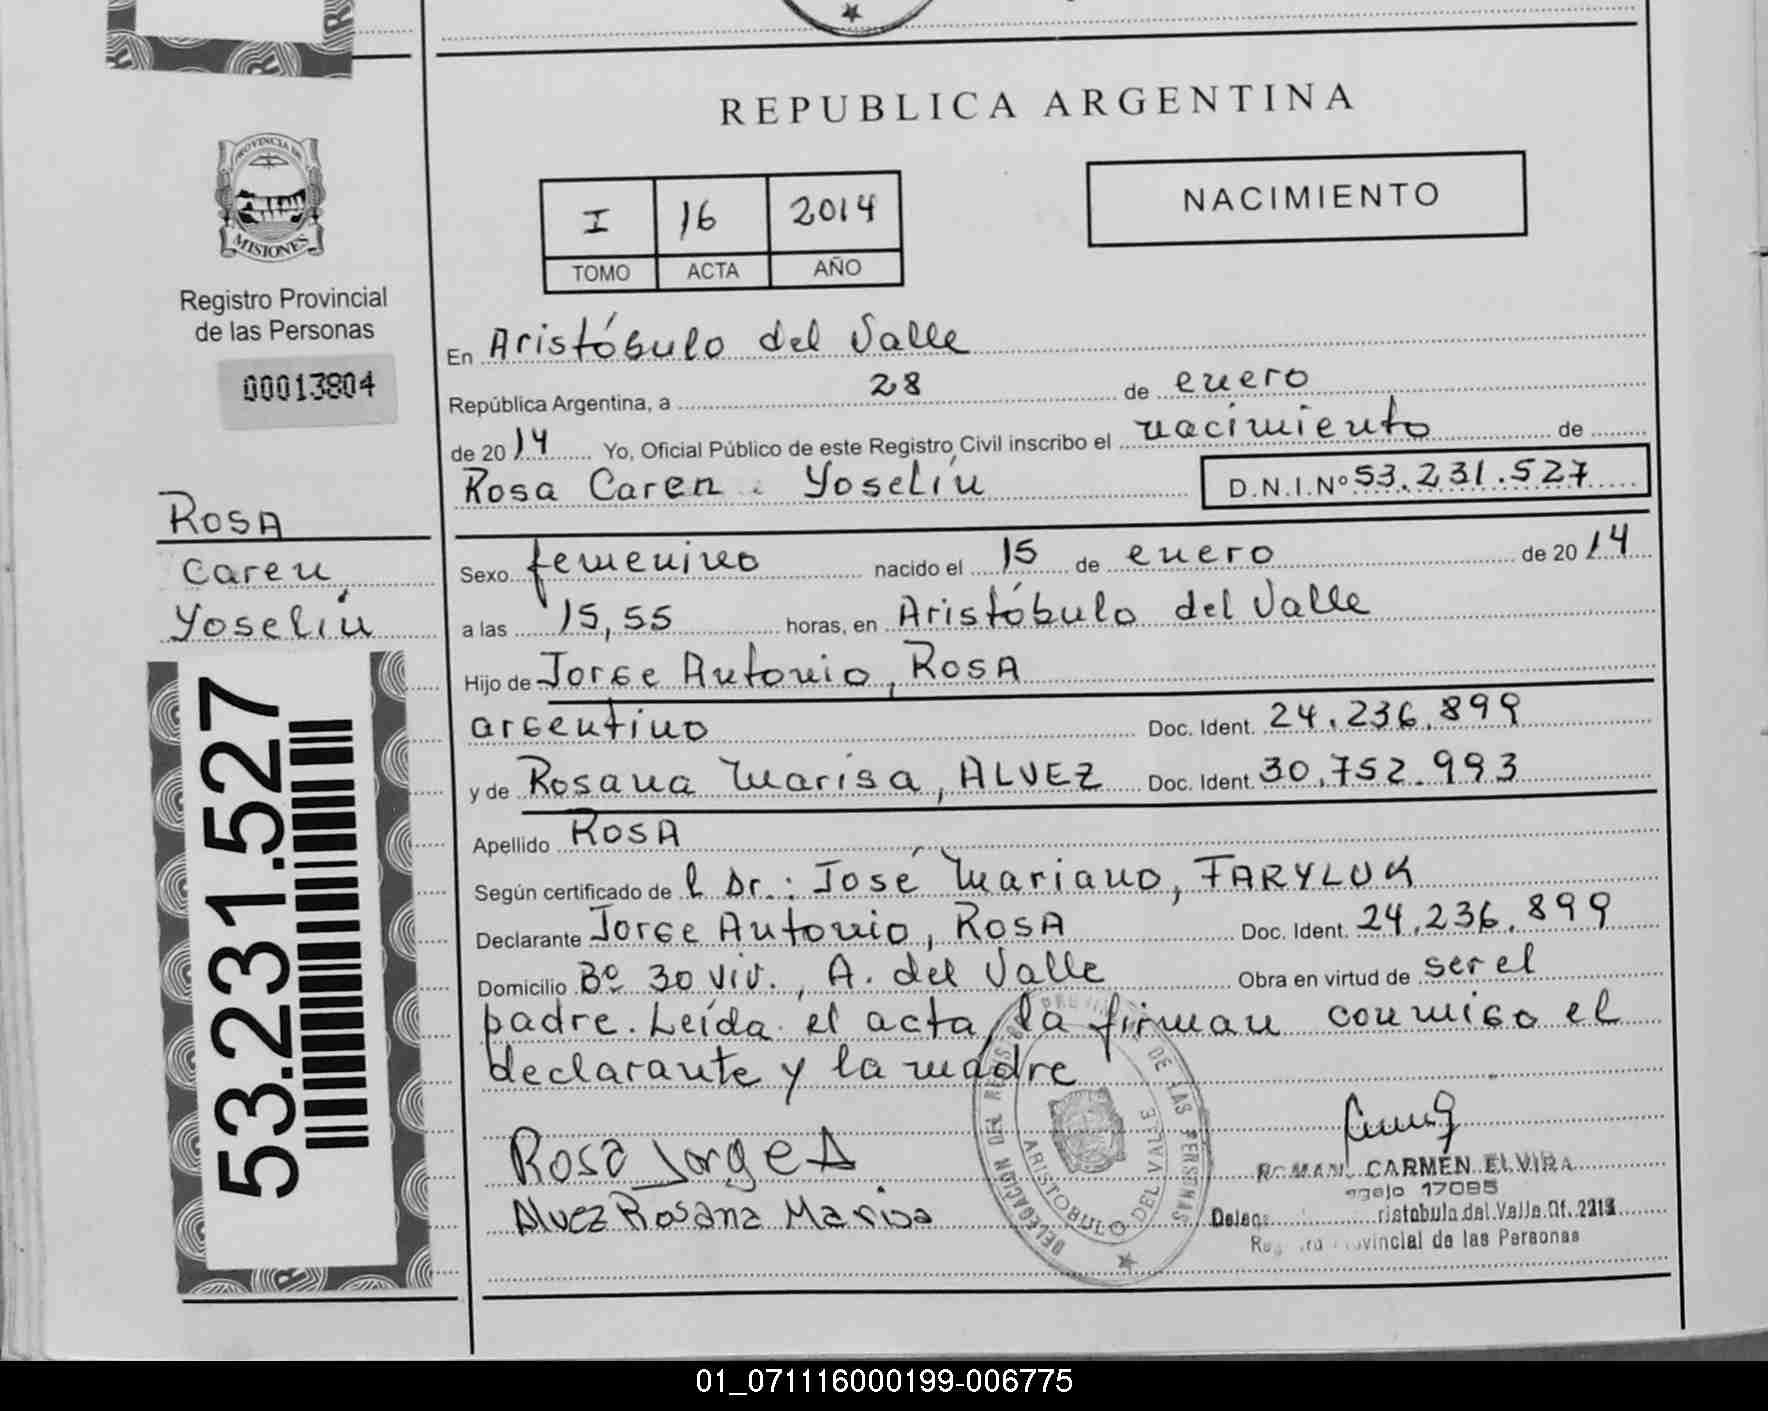 REPUBLICA ARGENTINA
PROVINCIA DE
MISIONES
Registro Provincial
de las Personas
00013804
ROSA
Caren
Yoselín
53.231.527
NACIMIENTO
I 16 2014
TOMO ACTA AÑO
En Aristóbulo del Valle
República Argentina, a 28 de enero
de 2014 Yo, Oficial Público de este Registro Civil inscribo el nacimiento de
Rosa Caren Yoselín D.N.I.Nº 53.231.527
Sexo femenino nacido el 15 de enero de 2014
a las 15,55 horas, en Aristóbulo del Valle
Hijo de Jorge Antonio, ROSA
argentino Doc. Ident. 24.236.899
y de Rosana Marisa, ALVEZ Doc. Ident. 30.752.993
Apellido ROSA
Según certificado de l Dr.: José Mariano, FARYLUK
Declarante Jorge Antonio, ROSA Doc. Ident. 24.236.899
Domicilio Bº 30 viv., A. del Valle Obra en virtud de ser el
padre. Leída el acta, la firman conmigo el
declarante y la madre
Rosa Jorge A
Alvez Rosana Marisa
DELEGACION DEL DE LAS PERSONAS
ARISTOBULO DEL VALLE
ROMAN CARMEN ELVIRA
17085
ristobulo del Valle Of. 2213
vincial de las Personas
01_071116000199-006775